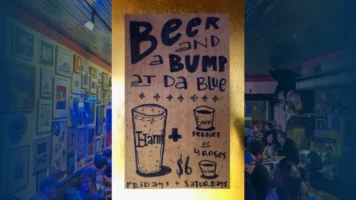 BEER
AND
A BUMP
AT DA BLUE
Hamm
+
FERNET
OR
4 ROSES
$6
FRIDAYS + SATURDAYS